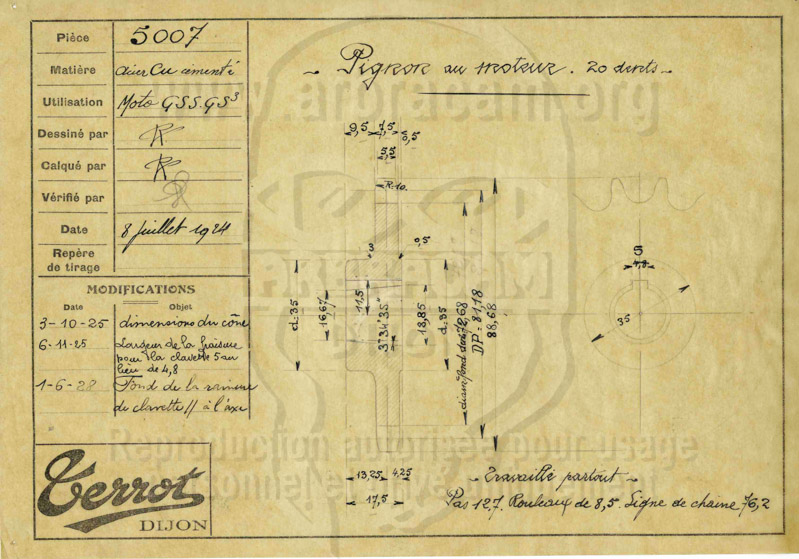 Pièce 5007
Matière acier Cu cimenté
Utilisation Moto GSS.GS³
Dessiné par R
Calqué par R
Vérifié par
Date 8 Juillet 1924
Repère
de tirage
MODIFICATIONS
Date Objet
3-10-25 dimensions du cône
6-11-25 Largeur de la fraisure
pour la clavette 5 au
lieu de 4,8
1-6-28 Fond de la rainure
de clavette // à l'axe
Terrot
DIJON
~ Pignon au moteur. 20 dents ~
www.arbracam.org
9,5 7,5 0,5
5,5
R.10.
3 0,5
d:35
16,67
11,5
3°34'35"
18,85
d:35
diam fond dents 72,68
DP: 81,18
88,68
5
4,8
35
13,25 4,25
17,5
~ Travaillé partout ~
Pas 12,7. Rouleaux de 8,5. Ligne de chaine 76,2
Reproduction autorisée pour usage
personnel et privé uniquement